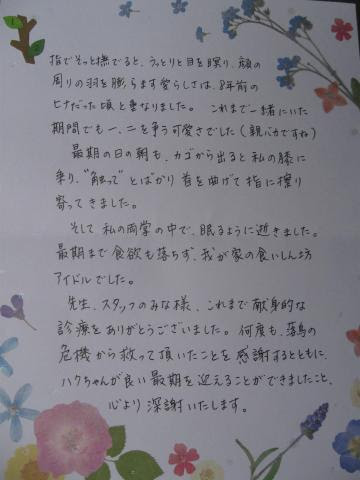 指でそっと撫でると、うっとりと目を瞑り、顔の
周りの羽を膨らます愛らしさは、8年前の
ヒナだった頃と重なりました。これまで一緒にいた
期間でも一、二を争う可愛さでした（親バカですね）
最期の日の朝も、カゴから出ると私の膝に
乗り、“触って”とばかり首を曲げて指に擦り
寄ってきました。
そして私の両掌の中で、眠るように逝きました。
最期まで食欲も落ちず、我が家の食いしん坊
アイドルでした。
先生、スタッフのみな様、これまで献身的な
診療をありがとうございました。何度も、落鳥の
危機から救って頂いたことを感謝するとともに、
ハクちゃんが良い最期を迎えることができましたこと、
心より深謝いたします。